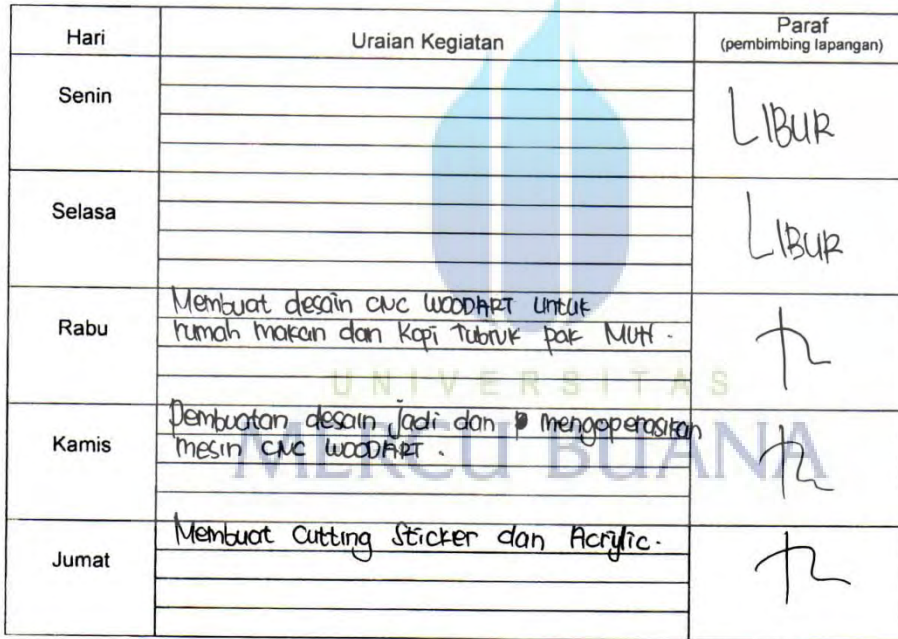 Hari Uraian Kegiatan Paraf
(pembimbing lapangan)
Senin LIBUR
Selasa LIBUR
Rabu Membuat desain CNC WOODART untuk
rumah makan dan Kopi Tubruk pak MUH.
UNIVERSITAS
MERCU BUANA
Kamis Pembuatan desain jadi dan mengoperasikan
mesin CNC WOODART.
Jumat Membuat Cutting Sticker dan Acrylic.